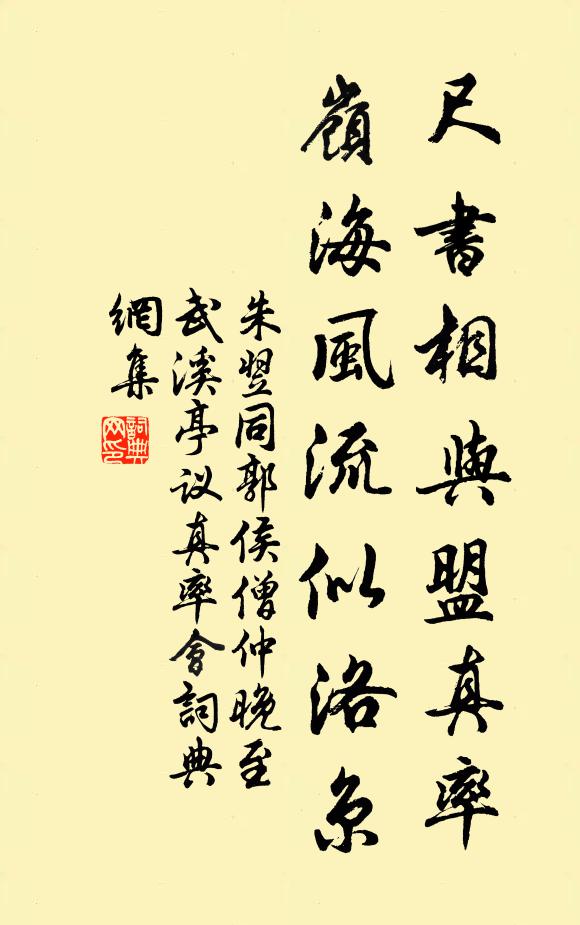 尺書相與盟真率
嶺海風流似洛京
朱翌同郭侯僧仲晚至
武溪亭议真率會詞典
網集
詞典
网印